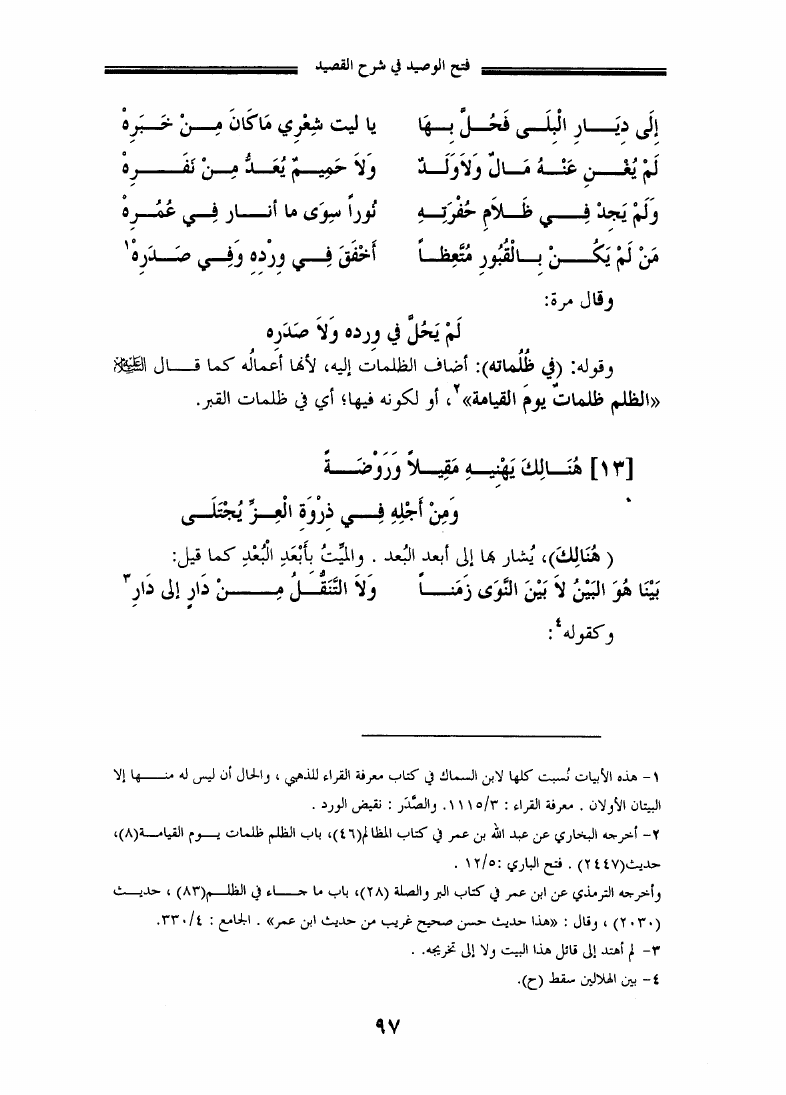 فتح الوصيد في شرح القصيد
إلَى دِيَـارِ الْبِلَـى فَحُلَّ بِـهَا يا ليت شعْرِي مَاكَانَ مِـنْ خَبَرِهْ
لَمْ يُغْـنِ عَنْـهُ مَـالٌ وَلاَوَلَـدٌ وَلاَ حَمِيـمٌ يُعَـدُّ مِـنْ نَفَـرِهْ
وَلَمْ يَجِدْ فِـي ظَـلاَمِ حُفْرَتِـهِ نُوراً سِوَى ما أنـار فِـي عُمُـرِهْ
مَنْ لَمْ يَكُـنْ بِـالْقُبُورِ مُتَّعِظـاً أَخْفَقَ فِـي وِرْدِهِ وَفِـي صَـدَرِهْ¹
وقال مرة:
لَمْ يَحُلَّ في وِرده ولاَ صَدَرِه
وقوله: (في ظُلُماته): أضاف الظلمات إليه، لأنها أعمالُه كما قـال ﷺ
«الظلم ظلماتٌ يومَ القيامة»²، أو لكونه فيها؛ أي في ظلمات القبر.
[١٣] هُنَـالِكَ يَهْنِيـهِ مَقِيـلاً وَرَوْضَـةً
وَمِنْ أَجْلِهِ فِـي ذِرْوَةِ الْعِـزِّ يُجْتَلَـى
( هُنَالِكَ)، يُشار بها إلى أبعد البُعد . والميِّتُ بأَبْعَدِ الْبُعْدِ كما قيل:
بَيْنَا هُوَ البَيْنُ لاَ بَيْنَ النَّوَى زَمَنـاً وَلاَ التَّنَقُّـلُ مِـنْ دَارٍ إلى دَارِ³
وكقوله⁴:
١- هذه الأبيات نُسبت كلها لابن السماك في كتاب معرفة القراء للذهبي ، والحال أن ليس له منـها إلا
البيتان الأولان . معرفة القراء : ١١١٥/٣. والصَّدَر : نقيض الورد .
٢- أخرجه البخاري عن عبد الله بن عمر في كتاب المظالم(٤٦)، باب الظلم ظلمات يـوم القيامـة(٨)،
حديث(٢٤٤٧) . فتح الباري :١٢/٥ .
وأخرجه الترمذي عن ابن عمر في كتاب البر والصلة (٢٨)، باب ما جـاء في الظلـم(٨٣) ، حديـث
(٢٠٣٠) ، وقال : «هذا حديث حسن صحيح غريب من حديث ابن عمر» . الجامع : ٣٣٠/٤.
٣- لم أهتد إلى قائل هذا البيت ولا إلى تخريجه. .
٤- بين الهلالين سقط (ح).
٩٧